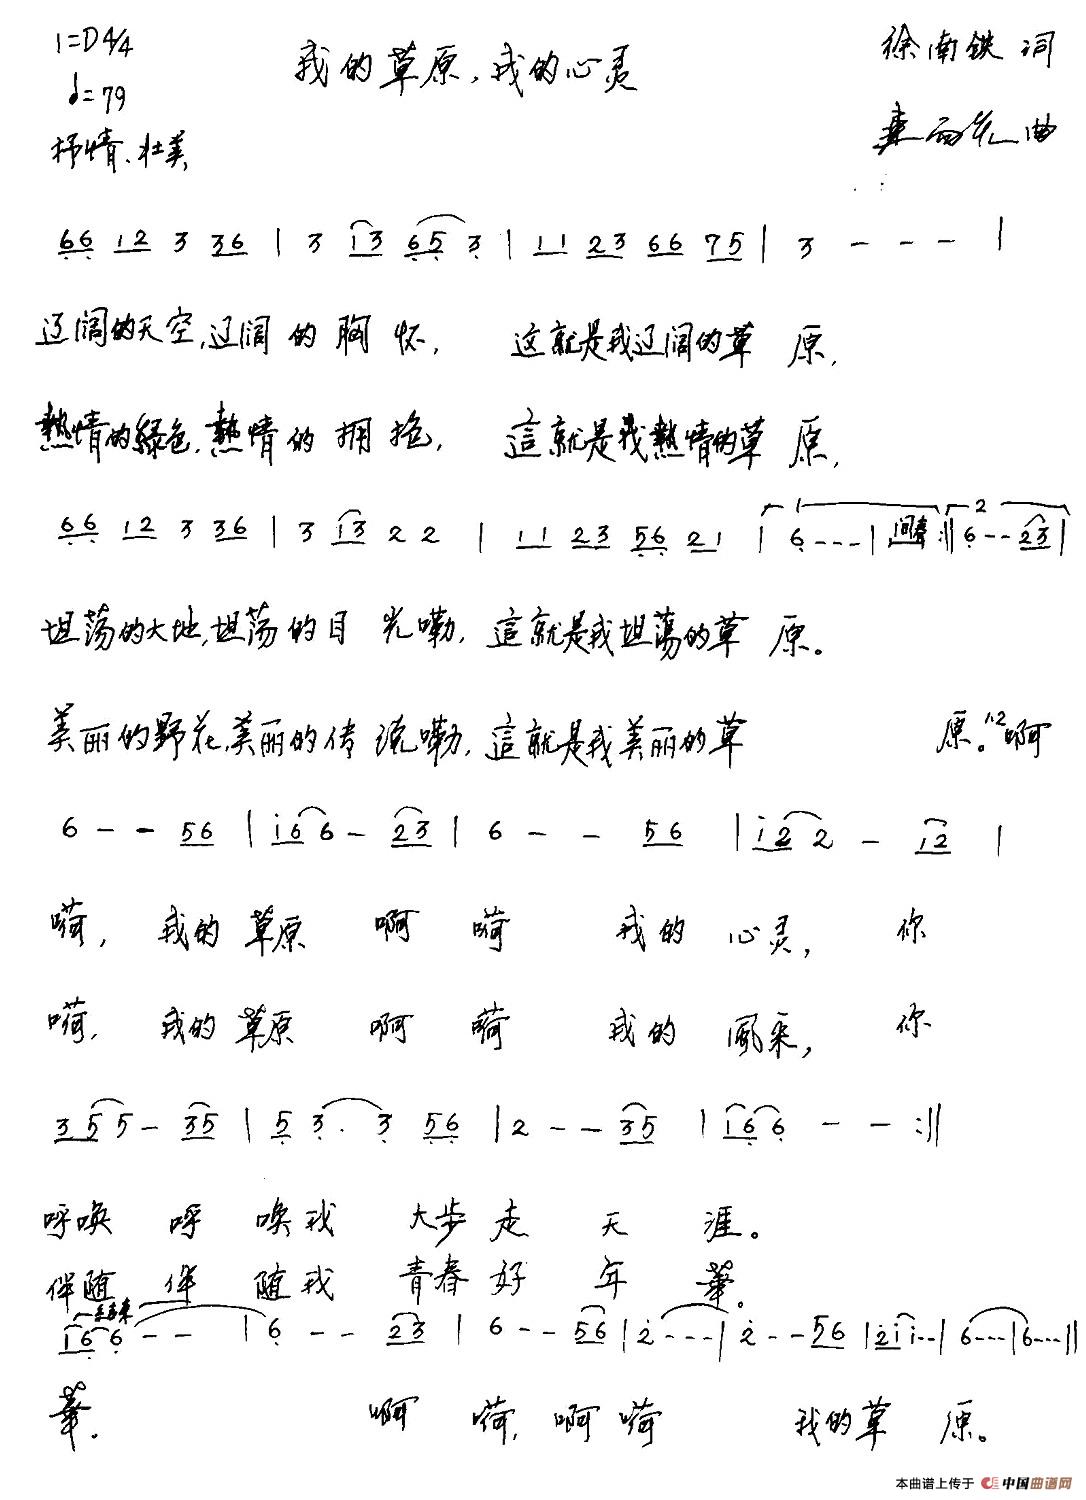 1=D 4/4
我的草原,我的心灵
徐南铁 词
♩=79
曲
抒情、壮美
66 12 3 36 | 3 13 65 3 | 11 23 66 75 | 3 - - - |
辽阔的天空,辽阔的胸怀, 这就是我辽阔的草原,
熱情的緑色,熱情的拥抱, 這就是我熱情的草原,
66 12 3 36 | 3 13 2 2 | 11 23 56 21 | 1 6 - - - | 间奏 :‖ 2 6 - - 23 |
坦荡的大地,坦荡的目光嘞, 這就是我坦蕩的草原。
美丽的野花,美丽的传说嘞, 這就是我美丽的草 原。1.2 啊
6 - - 56 | i66 - 23 | 6 - - 56 | i22 - 12 |
嗬, 我的草原 啊 嗬 我的心灵, 你
嗬, 我的草原 啊 嗬 我的風采, 你
355 - 35 | 5 3 . 3 56 | 2 - - 35 | 166 - - :‖
呼唤 呼唤我 大步走天涯。
伴随 伴随我 青春好年華。
结束
166 - - | 6 - - 23 | 6 - - 56 | 2 - - - | 2 - - 56 | 2ii - - | 6 - - - | 6 - - - ‖
華。 啊 嗬, 啊 嗬 我的草原。
本曲谱上传于 中国曲谱网